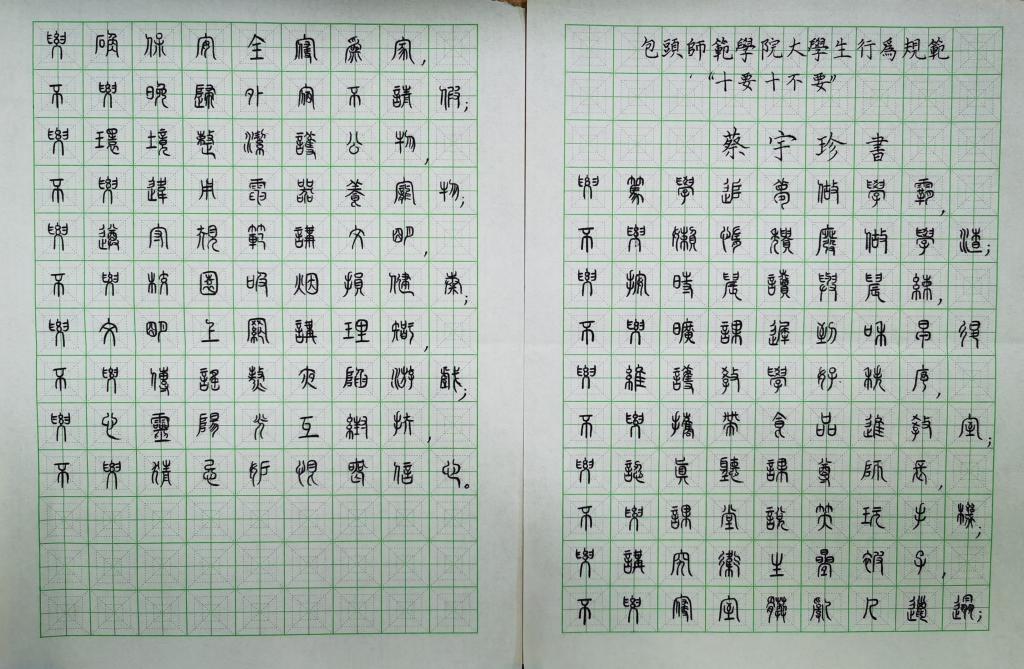 包頭師範學院大學生行爲規範
"十要十不要"
蔡宇珍書
要篤學追夢做學霸,
不要懶惰頹廢做學渣;
要按時晨讀與晨練,
不要曠課遲到和早退
要維護教學好秩序,
不要攜帶食品進教室;
要認眞聽課尊師長,
不要課堂說笑玩手機;
要講究衛生疊被子,
不要寢室髒亂人邋遢;
要確保安全寢爲家,
不要晚歸外宿不請假;
要環境整潔護公物,
不要違用電器養寵物;
要遵守規範講文明,
不要校園吸烟損健康;
要文明上網講理智,
不要傳謠熬夜陷游戲;
要心靈陽光互,
不要猜忌妒恨信心。